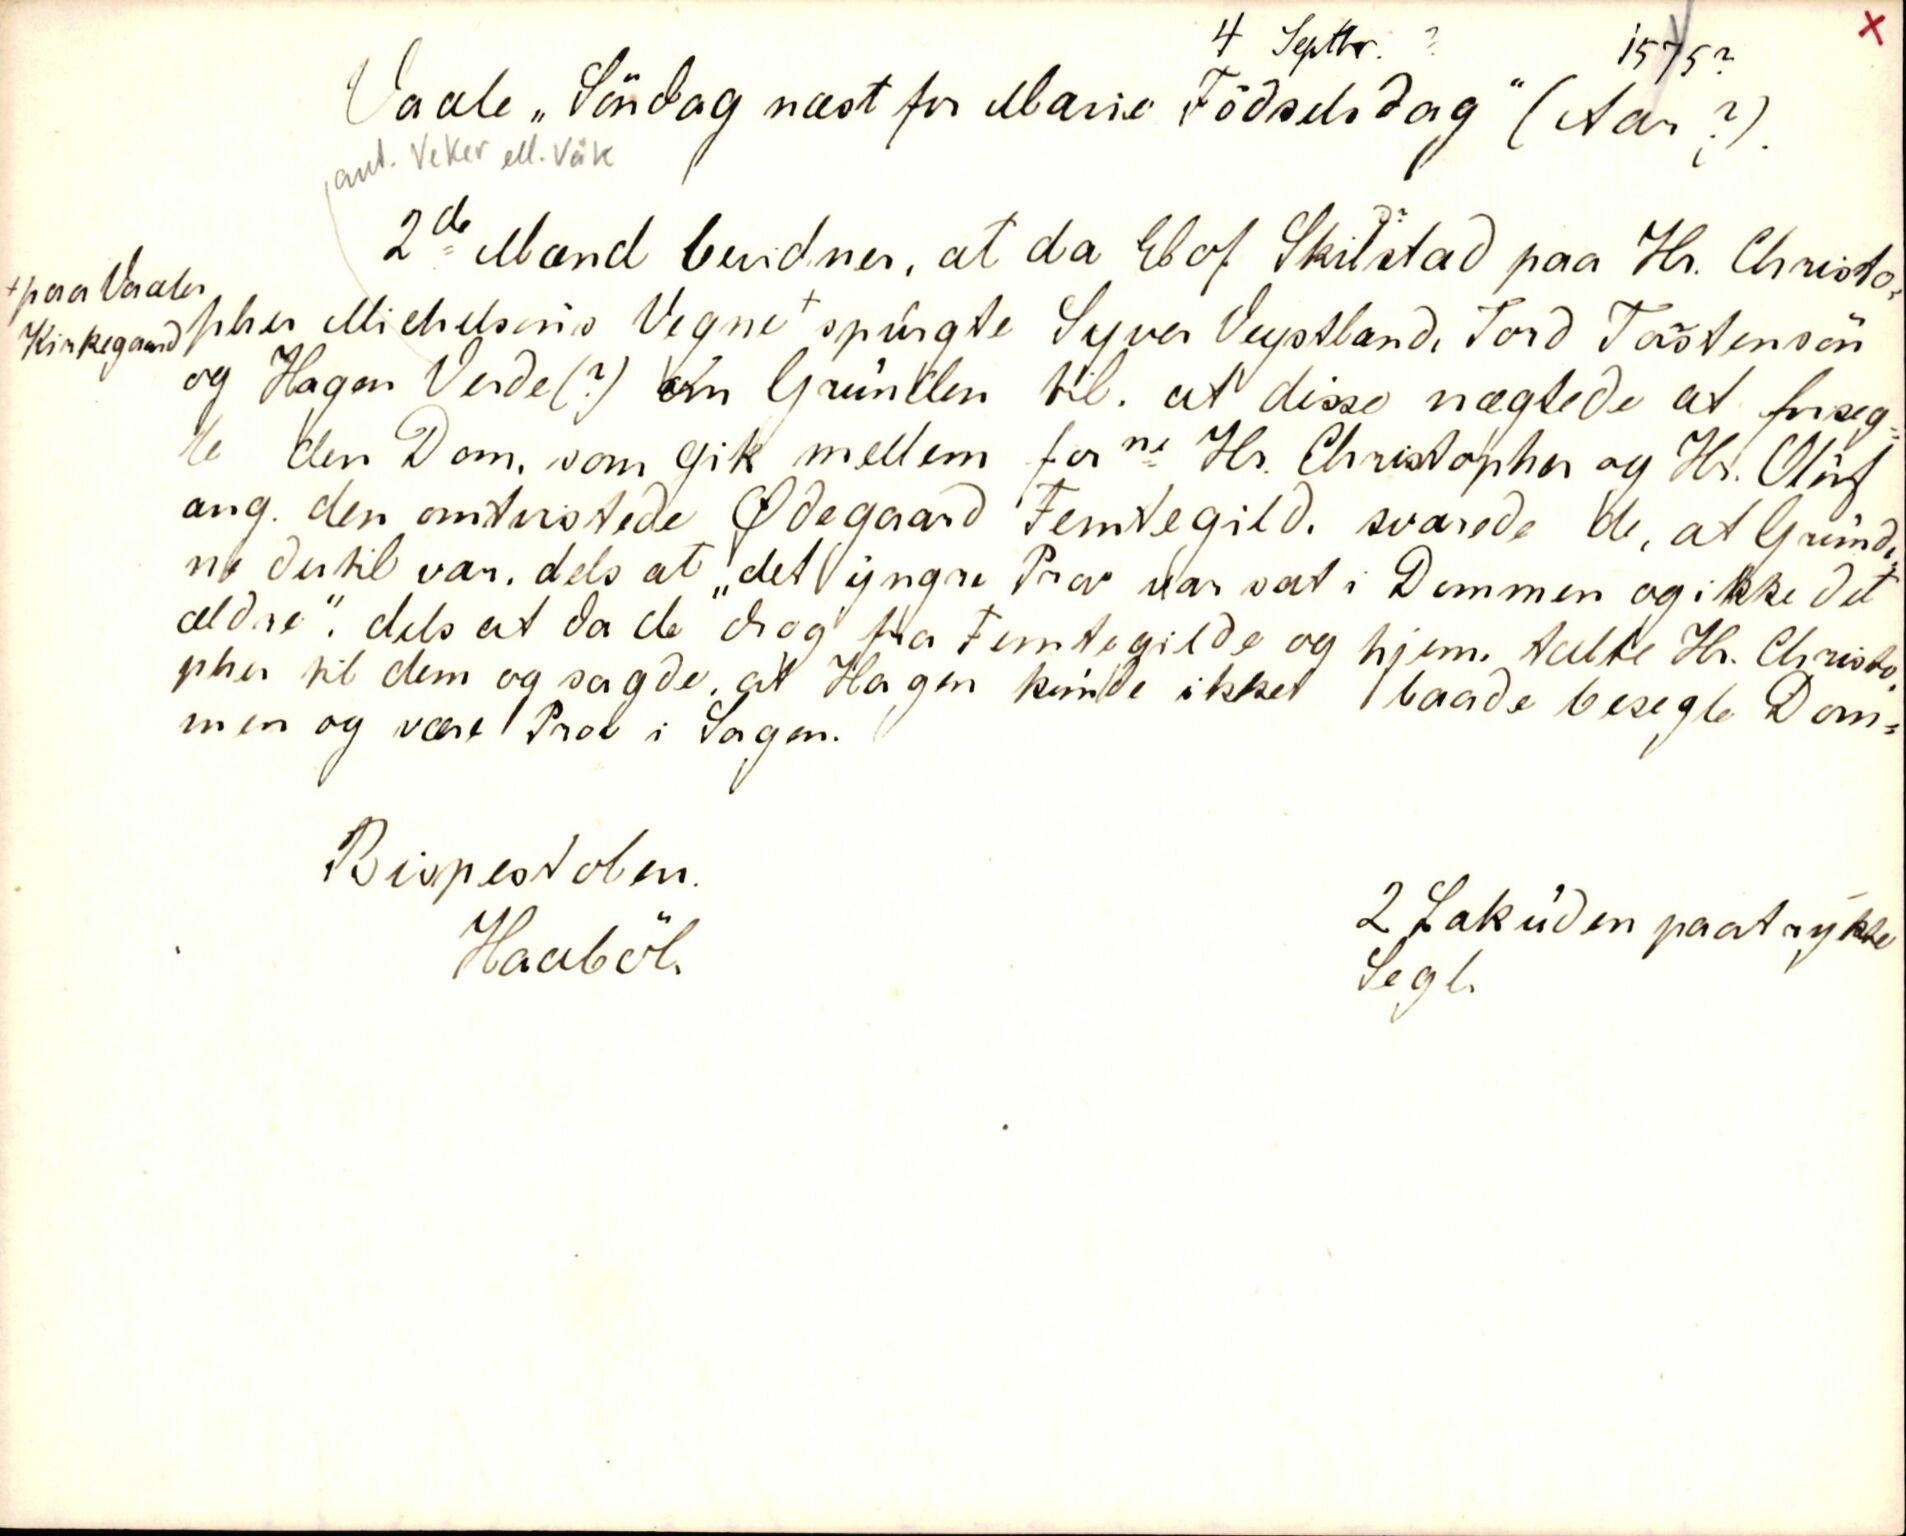 4 Septbr. ? 1575?
X
Vaale „Söndag næst for Marie Födselsdag" (Aar ?).
ant. Veker ell. Vik
2de Mænd bevidner, at da Elof Skilstad paa Hr. Christo-
+ paa Vaaler
Kirkegaard
pher Michelsöns Vegne + spurgte Syver Veystland, Tord Torstensön
og Hagen Verde(?) om Grunden til. at disse nægtede at forseg-
le den Dom, som gik mellem forne Hr. Christopher og Hr. Oluf
ang. den omtvistede Ødegaard Femtegild. svarede de, at Grunde-
ne dertil var. dels at „det yngre Prov var sat i Dommen og ikke det
ældre". dels at da de drog fra Femtegilde og hjem. talte Hr. Christo-
pher til dem og sagde, at Hagen kunde ikke baade besegle Dom-
men og være Prov i Sagen.
Bispestolen.
Haaböl.
2 Lak uden paatrykte
Segl.